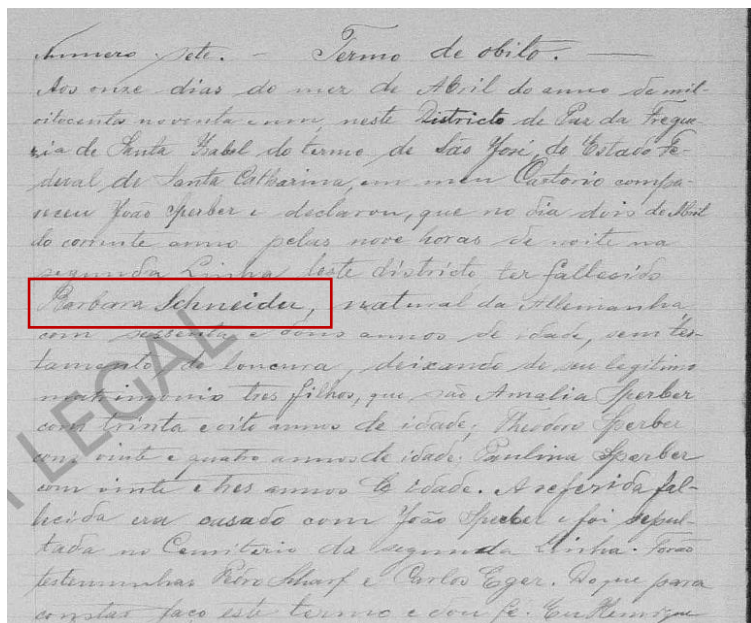 Numero sete. — Termo de obito. —
Aos onze dias do mez de Abril do anno de mil
oitocentos noventa e um, neste Districto de Paz da Fregue-
zia de Santa Isabel do termo de São José, do Estado Fe-
deral de Santa Catharina, em meu Cartorio compa-
receu João Sperber e declarou, que no dia dois de Abril
do corrente anno pelas nove horas da noite na
segunda Linha deste districto, ter fallecido
Barbara Schneider, natural da Allemanha
com sessenta e dous annos de idade, sem tes-
tamento, de loucura, deixando de seu legitimo
matrimonio tres filhos, que são Amalia Sperber
com trinta e oito annos de idade; Theodoro Sperber
com vinte e quatro annos de idade; Paulina Sperber
com vinte e tres annos de idade. A referida fal-
lecida era casado com João Sperber e foi sepul-
tada no Cemiterio da segunda Linha. Forão
testemunhas Pedro Scharf e Carlos Eger. Do que para
constar faço este termo e dou fé. Eu Henrique
LEGAL